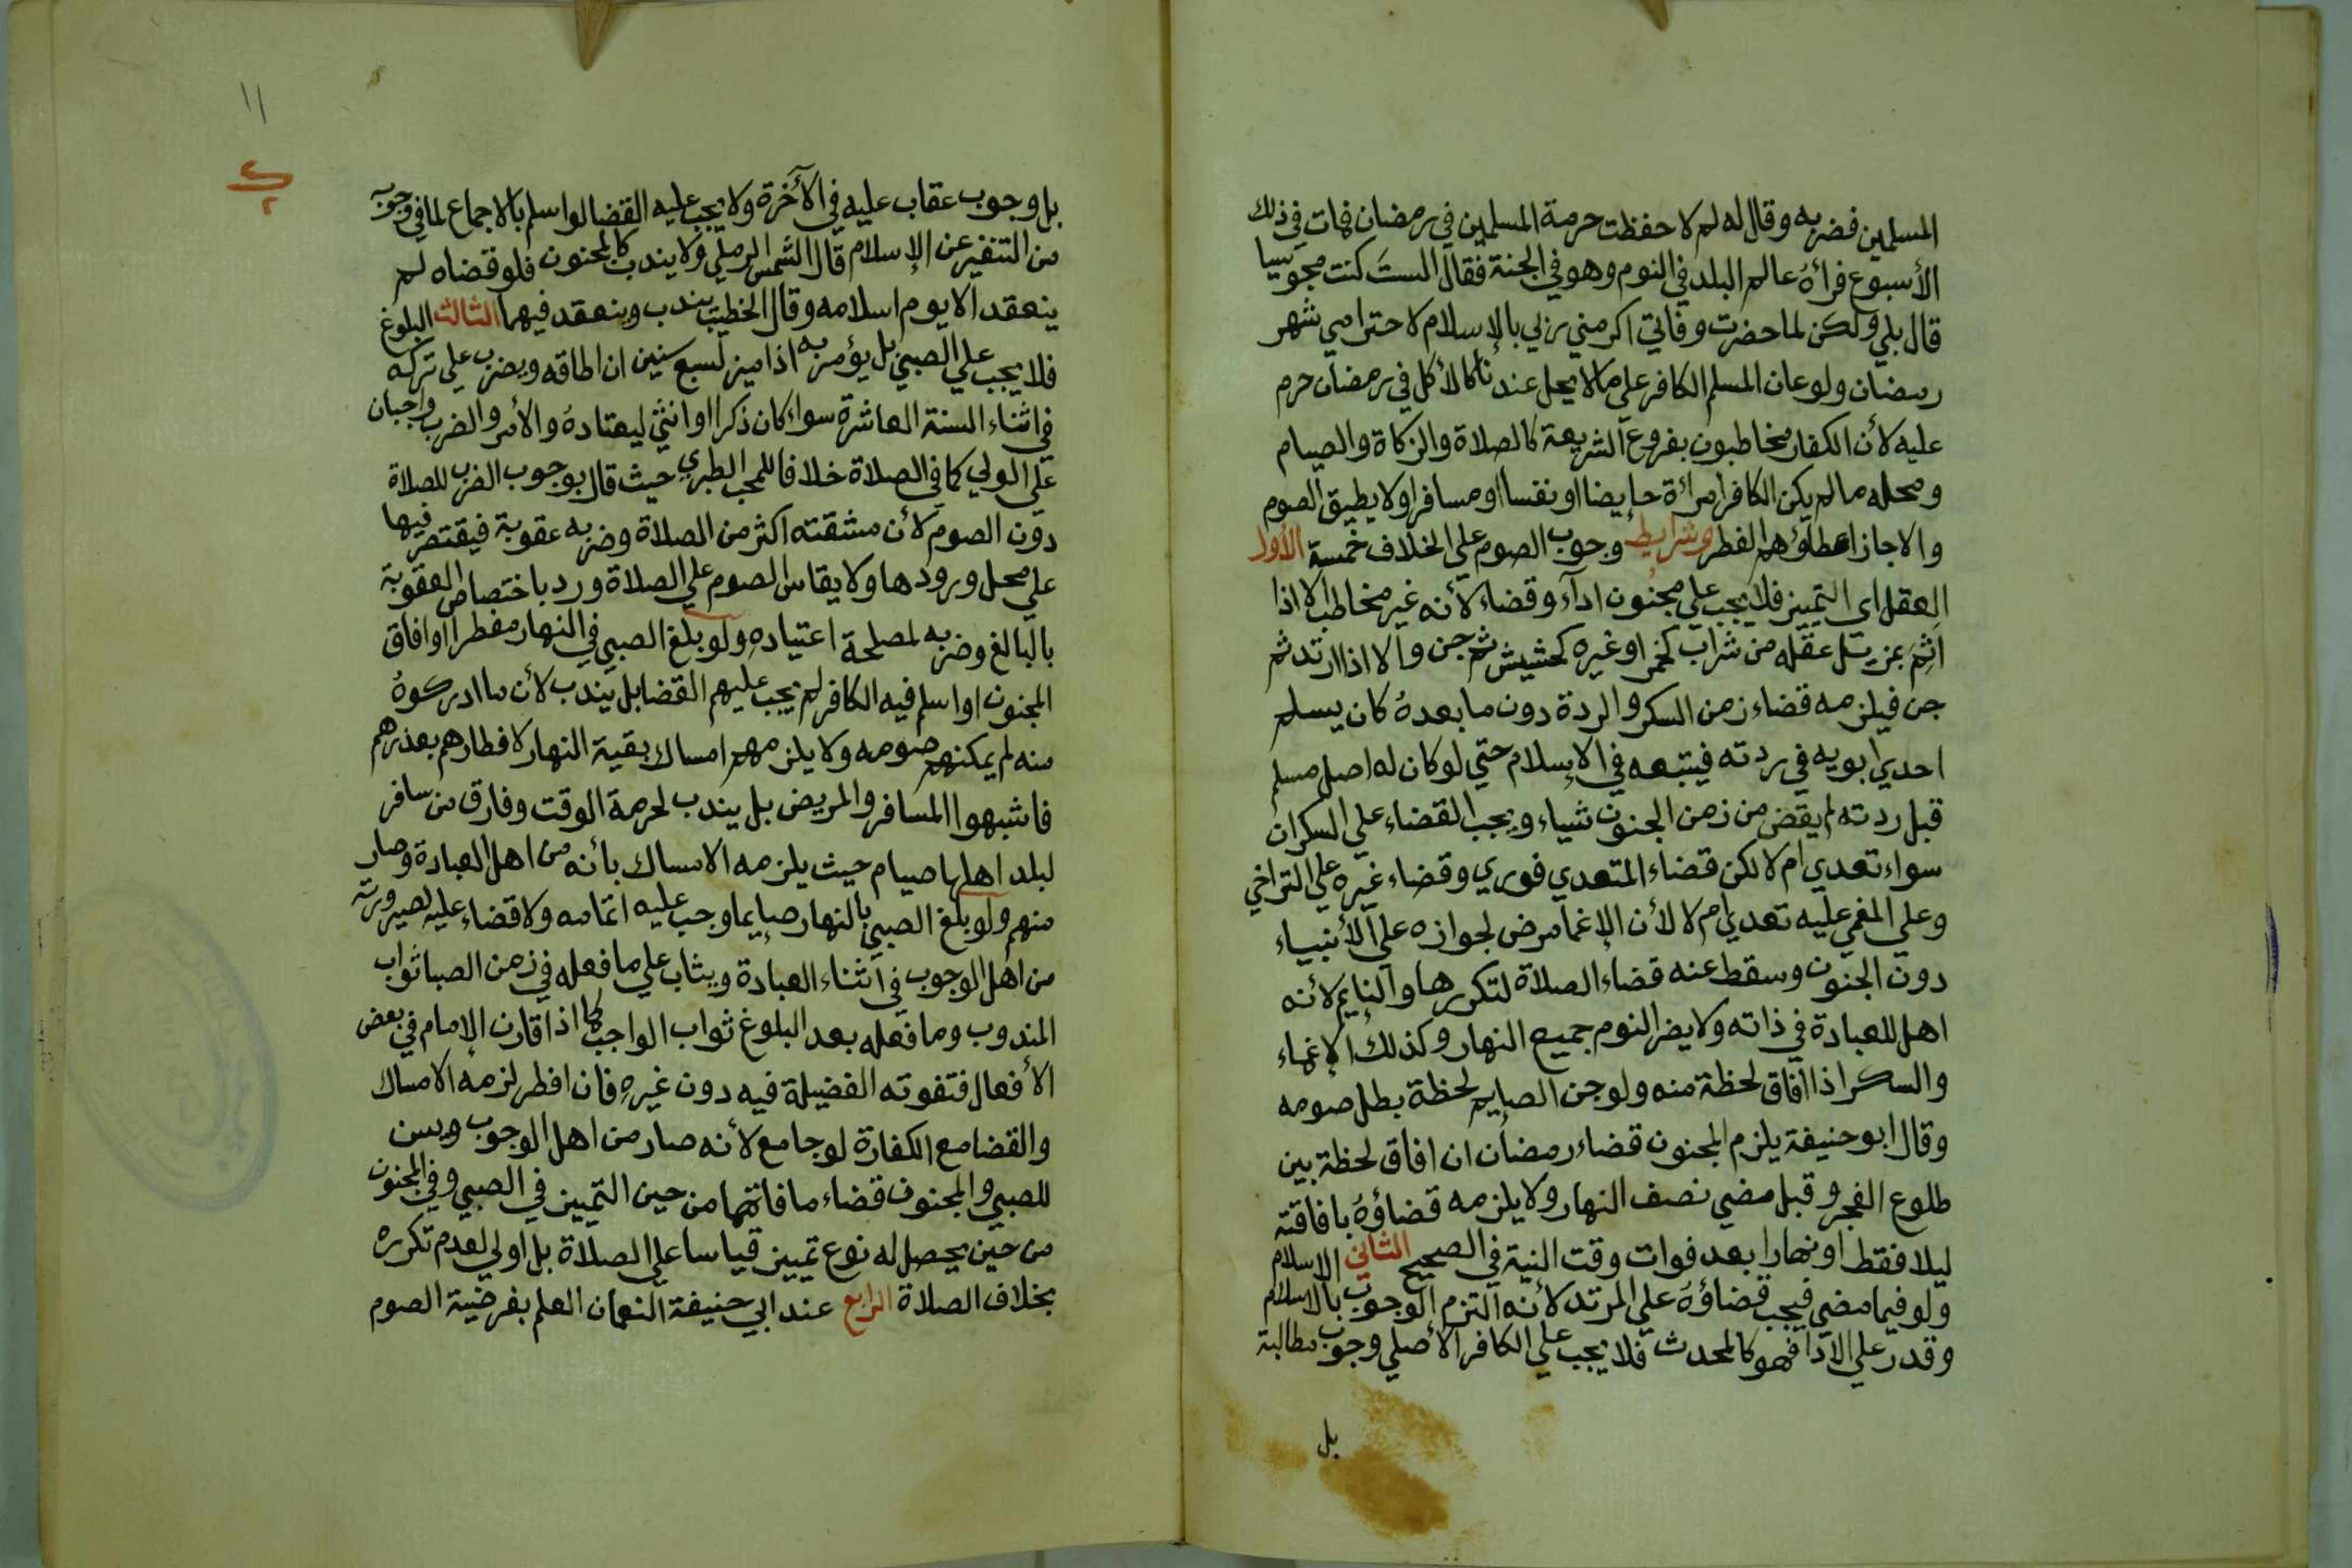 المسلمين فضربه وقال له لم لا حفظت حرمة المسلمين في رمضان فمات في ذلك
الأسبوع فرأهُ عالم البلد في النوم وهو في الجنة فقال الستَ كنت مجوسيا
قال بلي ولكن لما حضرت وفاتي اكرمني ربي بالإسلام لاحترامي شهر
رمضان ولو عان المسلم الكافر علي ما لا يحل عندنا كالأكل في رمضان حرم
عليه لأن الكفار مخاطبون بفروع الشريعة كالصلاة والزكاة والصيام
ومحله ما لم يكن الكافر امرأة حايضا او نفسا او مسافرا ولا يطيق الصوم
والا جاز اعطاؤهم الفطر وشرايط وجوب الصوم علي الخلاف خمسة الأول
العقل اي التمييز فلا يجب علي مجنون ادآء وقضاء لأنه غير مخاطب الا اذا
اثِمَ بمزيل عقله من شراب كخمر او غيره كحشيش ثم جن والا اذا ارتد ثم
جن فيلزمه قضاء زمن السكر والردة دون ما بعدهُ كان يسلم
احدي ابويه في ردته فيتبعه في الإسلام حتي لو كان له اصل مسلم
قبل ردته لم يقض من زمن الجنون شياء ويجب القضاء علي السكران
سواء تعدي ام لا لكن قضاء المتعدي فوري وقضاء غيره علي التراخي
وعلي المغمي عليه تعدي ام لا لأن الإغما مرض لجوازه علي الأنبياء
دون الجنون وسقط عنه قضاء الصلاة لتكررها والنايم لأنه
اهل للعبادة في ذاته ولا يضر النوم جميع النهار وكذلك الإغماء
والسكر اذا افاق لحظة منه ولو جن الصايم لحظة بطل صومه
وقال ابو حنيفة يلزم المجنون قضاء رمضان ان افاق لحظة بين
طلوع الفجر وقبل مضي نصف النهار ولا يلزمه قضاؤهُ بافاقته
ليلا فقط او نهارا بعد فوات وقت النية في الصحيح الثاني الاسلام
ولو فيما مضي فيجب قضاؤهُ علي المرتد لأنه التزم الوجوب بالاسلام
وقدر علي الادا فهو كالمحدث فلا يجب علي الكافر الأصلي وجوب مطالبة
بل
١١
بل وجوب عقاب عليه في الآخرة ولا يجب عليه القضا لو اسلم بالاجماع لما في وجوبه
من التنفير عن الإسلام قال الشمس الرملي ولا يندب كالمجنون فلو قضاه لم
ينعقد الا يوم اسلامه وقال الخطيب يندب وينعقد فيهما الثالث البلوغ
فلا يجب علي الصبي بل يؤمر به اذا ميز لسبع سنين ان اطاقه ويضرب علي تركه
في اثناء السنة العاشرة سواء كان ذكرا او انثي ليعتادهُ والأمر والضرب واجبان
علي الولي كما في الصلاة خلافا للمحب الطبري حيث قال بوجوب الضرب للصلاة
دون الصوم لأن مشقته اكثر من الصلاة وضربه عقوبة فيقتصر فيها
علي محل ورودها ولا يقاس الصوم علي الصلاة ورد باختصاص العقوبة
بالبالغ وضربه لمصلحة اعتيادهِ ولو بلغ الصبي في النهار مفطرا او افاق
المجنون او اسلم فيه الكافر لم يجب عليهم القضا بل يندب لأن ما ادركوهُ
منه لم يمكنهم صومه ولا يلزمهم امساك بقية النهار لافطارهم بعذرهم
فاشبهوا المسافر والمريض بل يندب لحرمة الوقت وفارق من سافر
لبلد اهلها صيام حيث يلزمه الامساك بأنه من اهل العبادة وصار
منهم ولو بلغ الصبي بالنهار صايما وجب عليه اتمامه ولا قضاء عليه لصيرورته
من اهل الوجوب في اثناء العبادة ويثاب علي ما فعله في زمن الصبا ثواب
المندوب وما فعله بعد البلوغ ثواب الواجب كما اذا قارن الإمام في بعض
الأفعال فتفوته الفضيلة فيه دون غيرهِ فان افطر لزمه الامساك
والقضا مع الكفارة لو جامع لأنه صار من اهل الوجوب ويسن
للصبي والمجنون قضاء ما فاتهما من حين التمييز في الصبي وفي المجنون
من حين يحصل له نوع تمييز قياسا علي الصلاة بل اولي لعدم تكرره
بخلاف الصلاة الرابع عند ابي حنيفة النعمان العلم بفرضية الصوم